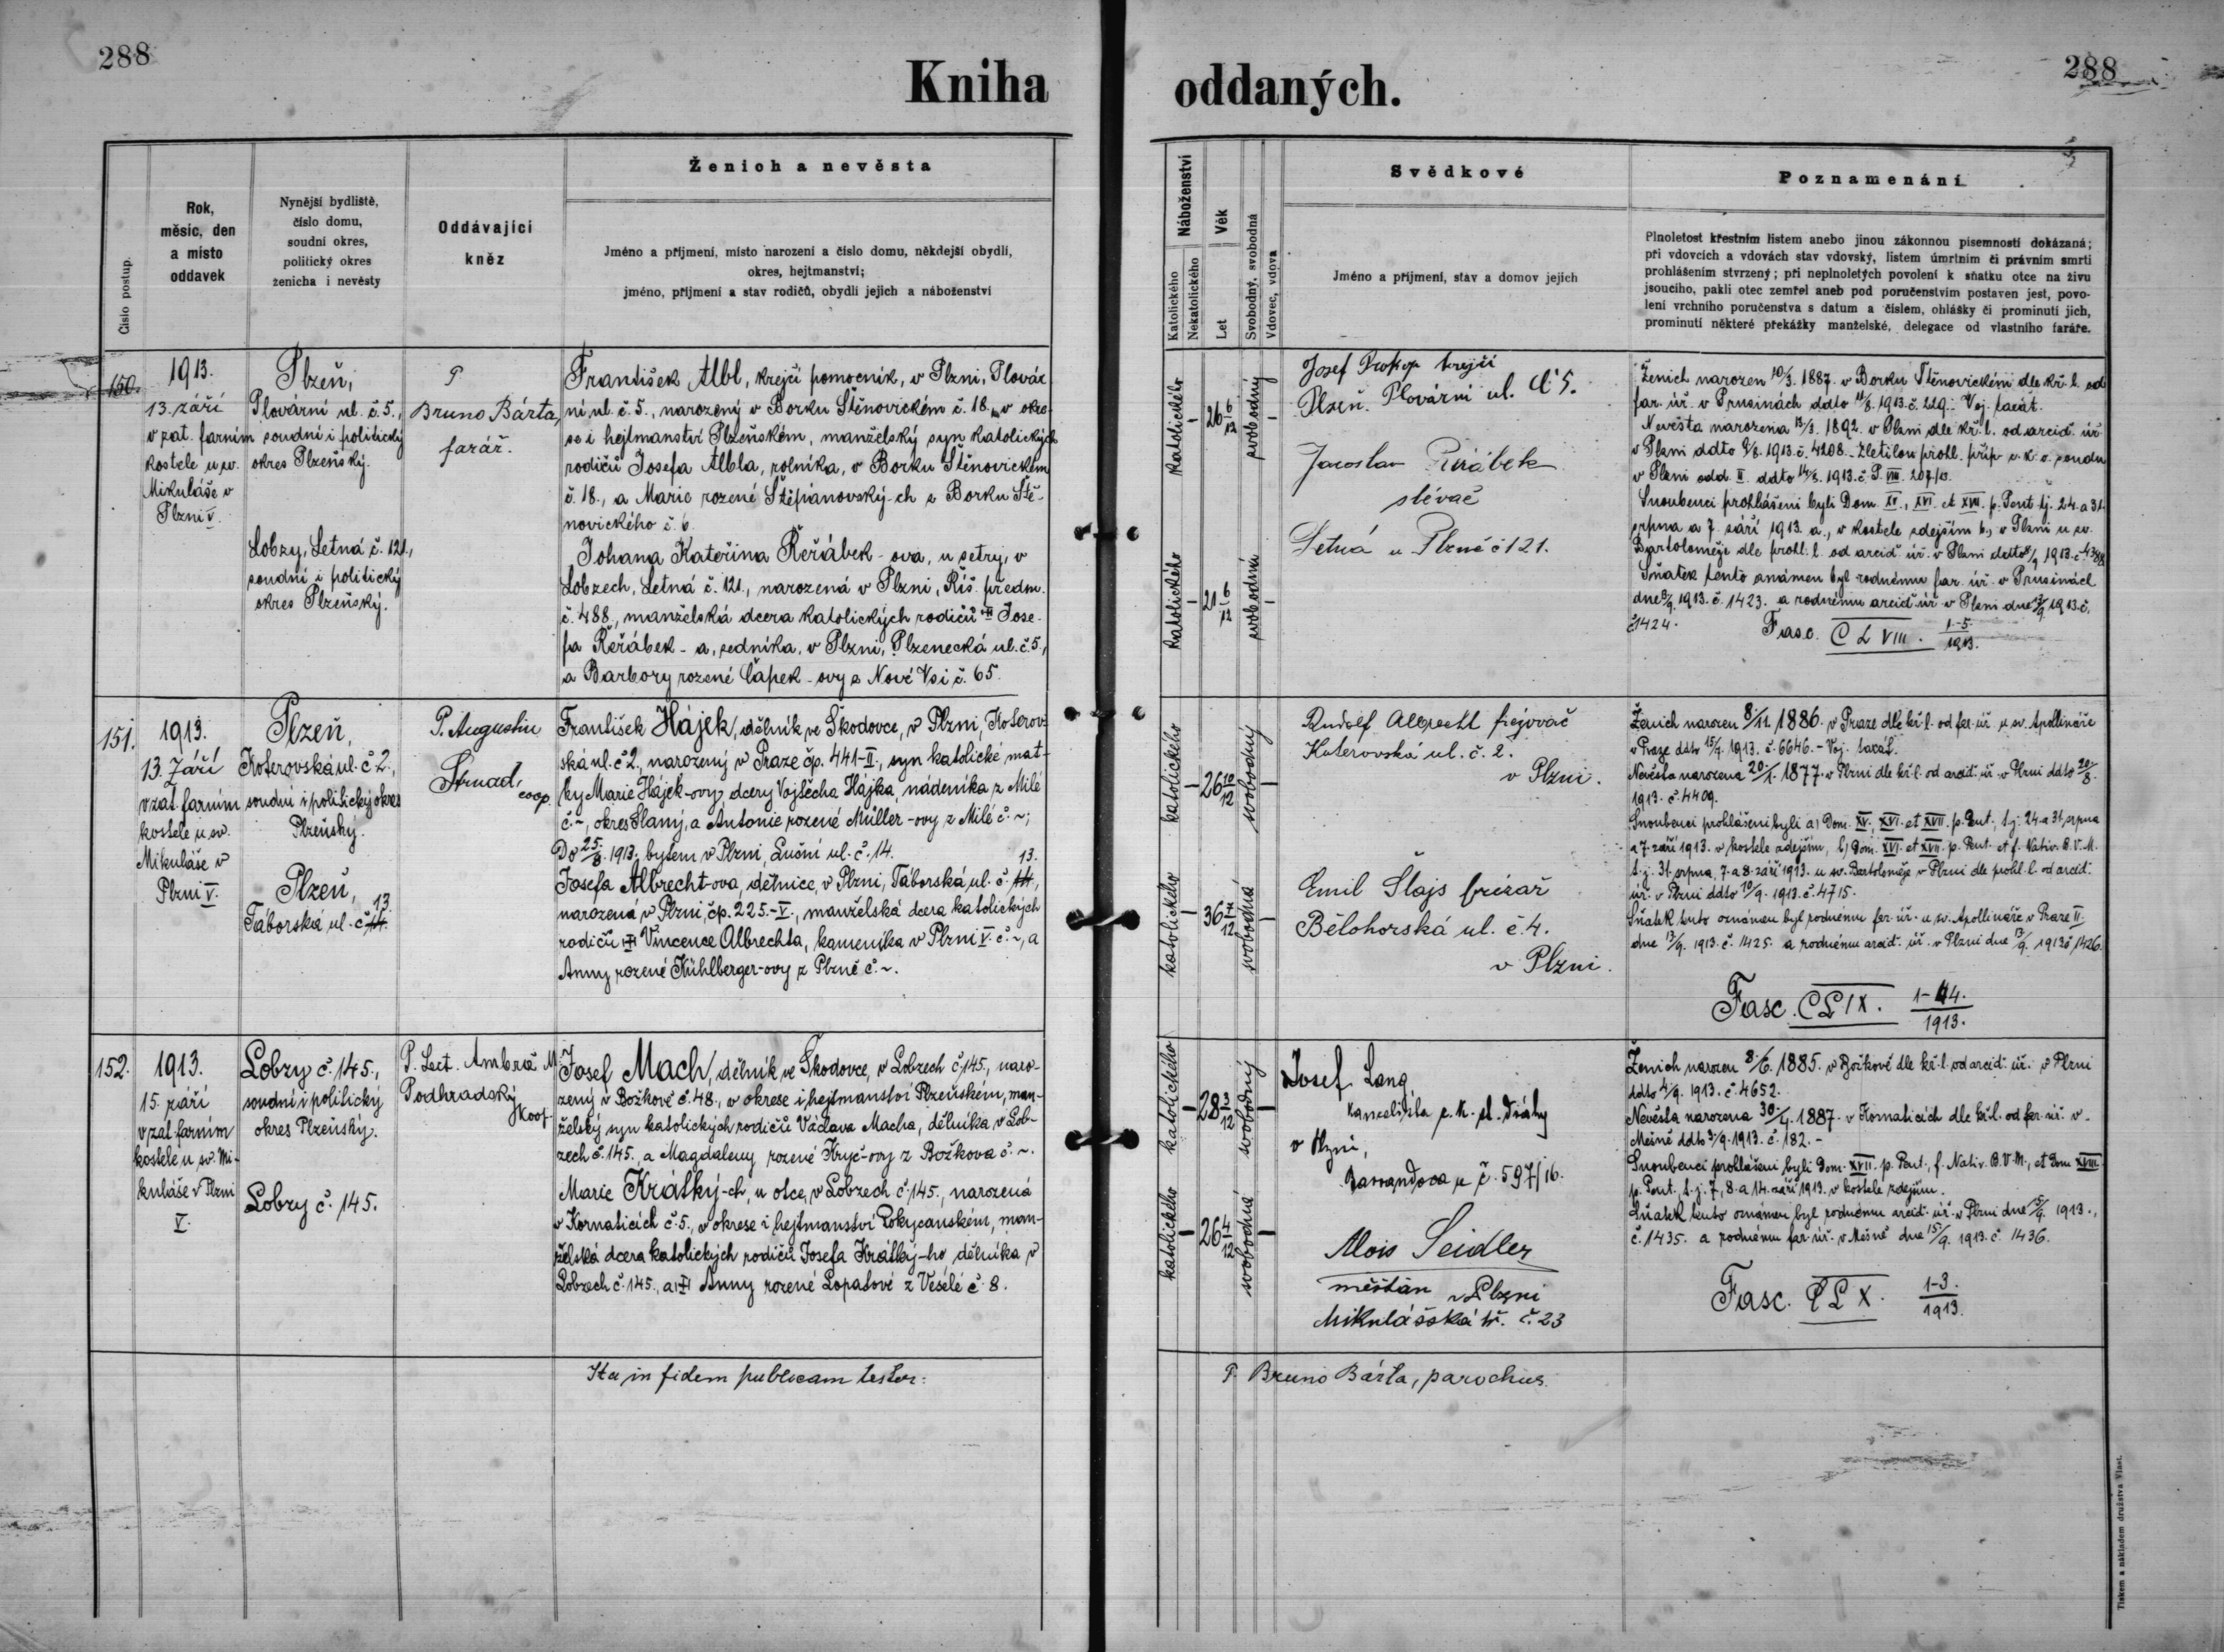 288
288
Kniha oddaných.
Číslo postup.
Rok,
měsíc, den
a místo
oddavek
Nynější bydliště,
číslo domu,
soudní okres,
politický okres
ženicha i nevěsty
Oddávající
kněz
Ženich a nevěsta
Jméno a příjmení, místo narození a číslo domu, někdejší obydlí,
okres, hejtmanství;
jméno, příjmení a stav rodičů, obydlí jejich a náboženství
Náboženství
Katolického
Nekatolického
Věk
Let
Svobodný, svobodná
Vdovec, vdova
Svědkové
Jméno a příjmení, stav a domov jejich
Poznamenání
Plnoletost křestním listem anebo jinou zákonnou písemností dokázaná;
při vdovcích a vdovách stav vdovský, listem úmrtním či právním smrti
prohlášením stvrzený; při neplnoletých povolení k sňatku otce na živu
jsoucího, pakli otec zemřel aneb pod poručenstvím postaven jest, povo-
lení vrchního poručenstva s datum a číslem, ohlášky či prominutí jich,
prominutí některé překážky manželské, delegace od vlastního faráře.
150.
1913.
13. září
v zat. farním
kostele u sv.
Mikuláše v
Plzni V.
Plzeň,
Plovární ul. č. 5.,
soudní i politický
okres Plzeňský.
Lobzy, Letná č. 121.,
soudní i politický
okres Plzeňský.
P
Bruno Bárta,
farář.
František Albl, krejčí pomocník, v Plzni, Plovár
ní ul. č. 5., narozený v Borku Štěnovickém č. 18., v okre-
se i hejtmanství Plzeňském, manželský syn katolických
rodičů Josefa Albla, rolníka, v Borku Štěnovickém
č. 18., a Marie rozené Štěpanovský-ch z Borku Ště-
novického č. 6.
Johana Kateřina Řeřábek-ova, u sestry, v
Lobzech, Letná č. 121., narozená v Plzni, Říš. předm.
č. 488., manželská dcera katolických rodičů Jose-
fa Řeřábek-a, sedníka, v Plzni, Plzenecká ul. č. 5.,
a Barbory rozené Čápek-ovy z Nové Vsi č. 65.
katolického
26 6/12
svobodný
katolického
21 6/12
svobodná
Josef Prokop krejčí
Plzeň. Plovární ul. č 5.
Jaroslav Řeřábek
slévač
Letná u Plzně č 121.
Ženich narozen 10/3. 1887. v Borku Štěnovickém dle kř. l. od
far. úř. v Prusinách ddto 11/8. 1913. č. 229. Voj. taxát.
Nevěsta narozena 13/3. 1892. v Plzni dle kř. l. od arcid. úř.
v Plzni ddto 8/8. 1913. č. 4208. - Zletilou prohl. příp. c. k. o. soudu
v Plzni odd. II. ddto 14/8. 1913. č. P. VIII. 207/10.
Snoubenci prohlášeni byli Dom. XV., XVI. et XVII. p. Pent. tj. 24. a 31.
srpna a 7. září 1913. a., v kostele zdejším b., v Plzni u sv.
Bartoloměje dle prohl. l. od arcid. úř. v Plzni ddto 8/9. 1913. č.
Sňatek tento oznámen byl rodnému far. úř. v Prusinách
dne 13/9. 1913. č. 1423. a rodnému arcid. úř. v Plzni dne 13/9. 1913. č.
č 1424.
Fasc. CLVIII. 1-5 / 1913.
151.
1913.
13. Září
v zat. farním
kostele u sv.
Mikuláše v
Plzni V.
Plzeň,
Koterovská ul. č 2.,
soudní i politický okres
Plzeňský.
Plzeň,
13.
Táborská ul. č 14.
P. Augustin
Strnad,
coop.
František Hájek, dělník ve Škodovce, v Plzni, Koterov-
ská ul. č 2., narozený v Praze čp. 441-II., syn katolické mat-
ky Marie Hájek-ovy, dcery Vojtěcha Hájka, nádeníka z Milé
č. ~, okres Slaný, a Antonie rozené Müller-ovy z Milé č. ~;
Do 25/8. 1913. bytem v Plzni, Luční ul. č. 14.
13.
Josefa Albrecht-ova, dělnice, v Plzni, Táborská ul. č. 14.,
narozená v Plzni, čp. 225.-V., manželská dcera katolických
rodičů Vincence Albrechta, kameníka v Plzni V. č. ~, a
Anny rozené Kühlberger-ovy z Plzně č. ~.
katolického
26 10/12
svobodný
katolického
36 7/12
svobodná
Rudolf Albrecht
Koterovská ul. č. 2.
v Plzni.
Emil Šlajs frézař
Bělohorská ul. č. 4.
v Plzni.
Ženich narozen 8./11. 1886. v Praze dle kř. l. od far. úř. u sv. Apollináře
v Praze ddto 15/7. 1913. č. 6646. - Voj. taxát.
Nevěsta narozena 20/1. 1877. v Plzni dle kř. l. od arcid. úř. v Plzni ddto 20/8.
1913. č. 4409.
Snoubenci prohlášeni byli a) Dom. XV., XVI. et XVII. p. Pent., t.j. 24. a 31. srpna
a 7. září 1913. v kostele zdejším, b) Dom. XVI. et XVII. p. Pent. et f. Nativ. B. V. M.
t. j. 31. srpna, 7. a 8. září 1913. u sv. Bartoloměje v Plzni dle prohl. l. od arcid.
úř. v Plzni ddto 10/9. 1913. č. 4715.
Sňatek tento oznámen byl rodnému far. úř. u sv. Apollináře v Praze II.
dne 13/9. 1913. č. 1425. a rodnému arcid. úř. v Plzni dne 13/9. 1913. č 1426.
Fasc. CLIX. 1-4. / 1913.
152.
1913.
15. září
v zat. farním
kostele u sv. Mi-
kuláše v Plzni
V.
Lobzy č. 145.,
soudní i politický
okres Plzeňský.
Lobzy č. 145.
P. Lect. Ambrož M.
Podhradský
Koop.
Josef Mach, dělník ve Škodovce, v Lobzech č. 145., naro-
zený v Božkově č. 48., v okrese i hejtmanství Plzeňském, man-
želský syn katolických rodičů Václava Macha, dělníka v Lob-
zech č. 145., a Magdaleny rozené Kryč-ovy z Božkova č. ~.
Marie Krátký-ch, u otce, v Lobzech č. 145., narozená
v Kornaticích č 5., v okrese i hejtmanství Rokycanském, man-
želská dcera katolických rodičů Josefa Krátký-ho, dělníka v
Lobzech č. 145., a Anny rozené Lopatové z Veselé č. 8.
katolického
28 3/12
svobodný
katolického
26 4/12
svobodná
Josef Lang,
kancelista c. k. st. dráhy
v Plzni,
č. 597/16.
Alois Seidler
měšťan v Plzni
Mikulášská tř. č. 23
Ženich narozen 8./6. 1885. v Božkově dle kř. l. od arcid. úř. v Plzni
ddto 4/9. 1913. č. 4652.
Nevěsta narozena 30/4. 1887. v Kornaticích dle kř. l. od far. úř. v
Mešně ddto 3/9. 1913. č. 182. -
Snoubenci prohlášeni byli Dom. XVII. p. Pent., f. Nativ. B. V. M., et Dom. XVIII.
p. Pent., t. j. 7., 8. a 14. září 1913. v kostele zdejším.
Sňatek tento oznámen byl rodnému arcid. úř. v Plzni dne 15/9. 1913.,
č. 1435. a rodnému far. úř. v Mešně dne 15/9. 1913. č. 1436.
Fasc. CLX. 1-3. / 1913.
Ita in fidem publicam testor:
P. Bruno Bárta, parochus.
Tiskem a nákladem družstva Vlast.